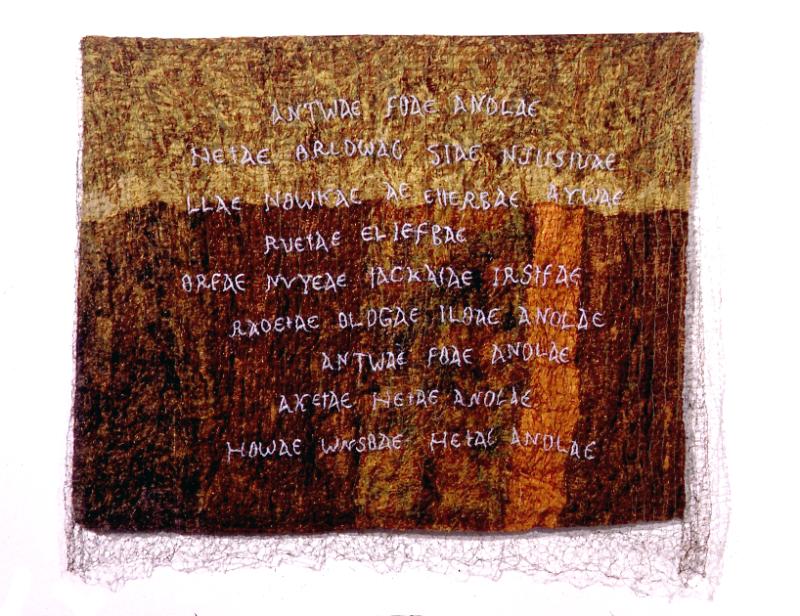 ANTWAE FOAE ANOLAE
HETAE ORLOWAE STAE NJUSIVAE
LLAE NOWKAE AE EHERBAE AYWAE
RUETAE ELIEFBAE
ORFAE NVYEAE IACKATAE IRSTFAE
RAOETAE OLOGAE ILOAE ANOLAE
ANTWAE FOAE ANOLAE
AKETAE HETAE ANOLAE
HOWAE WNSOAE HETAE ANOLAE